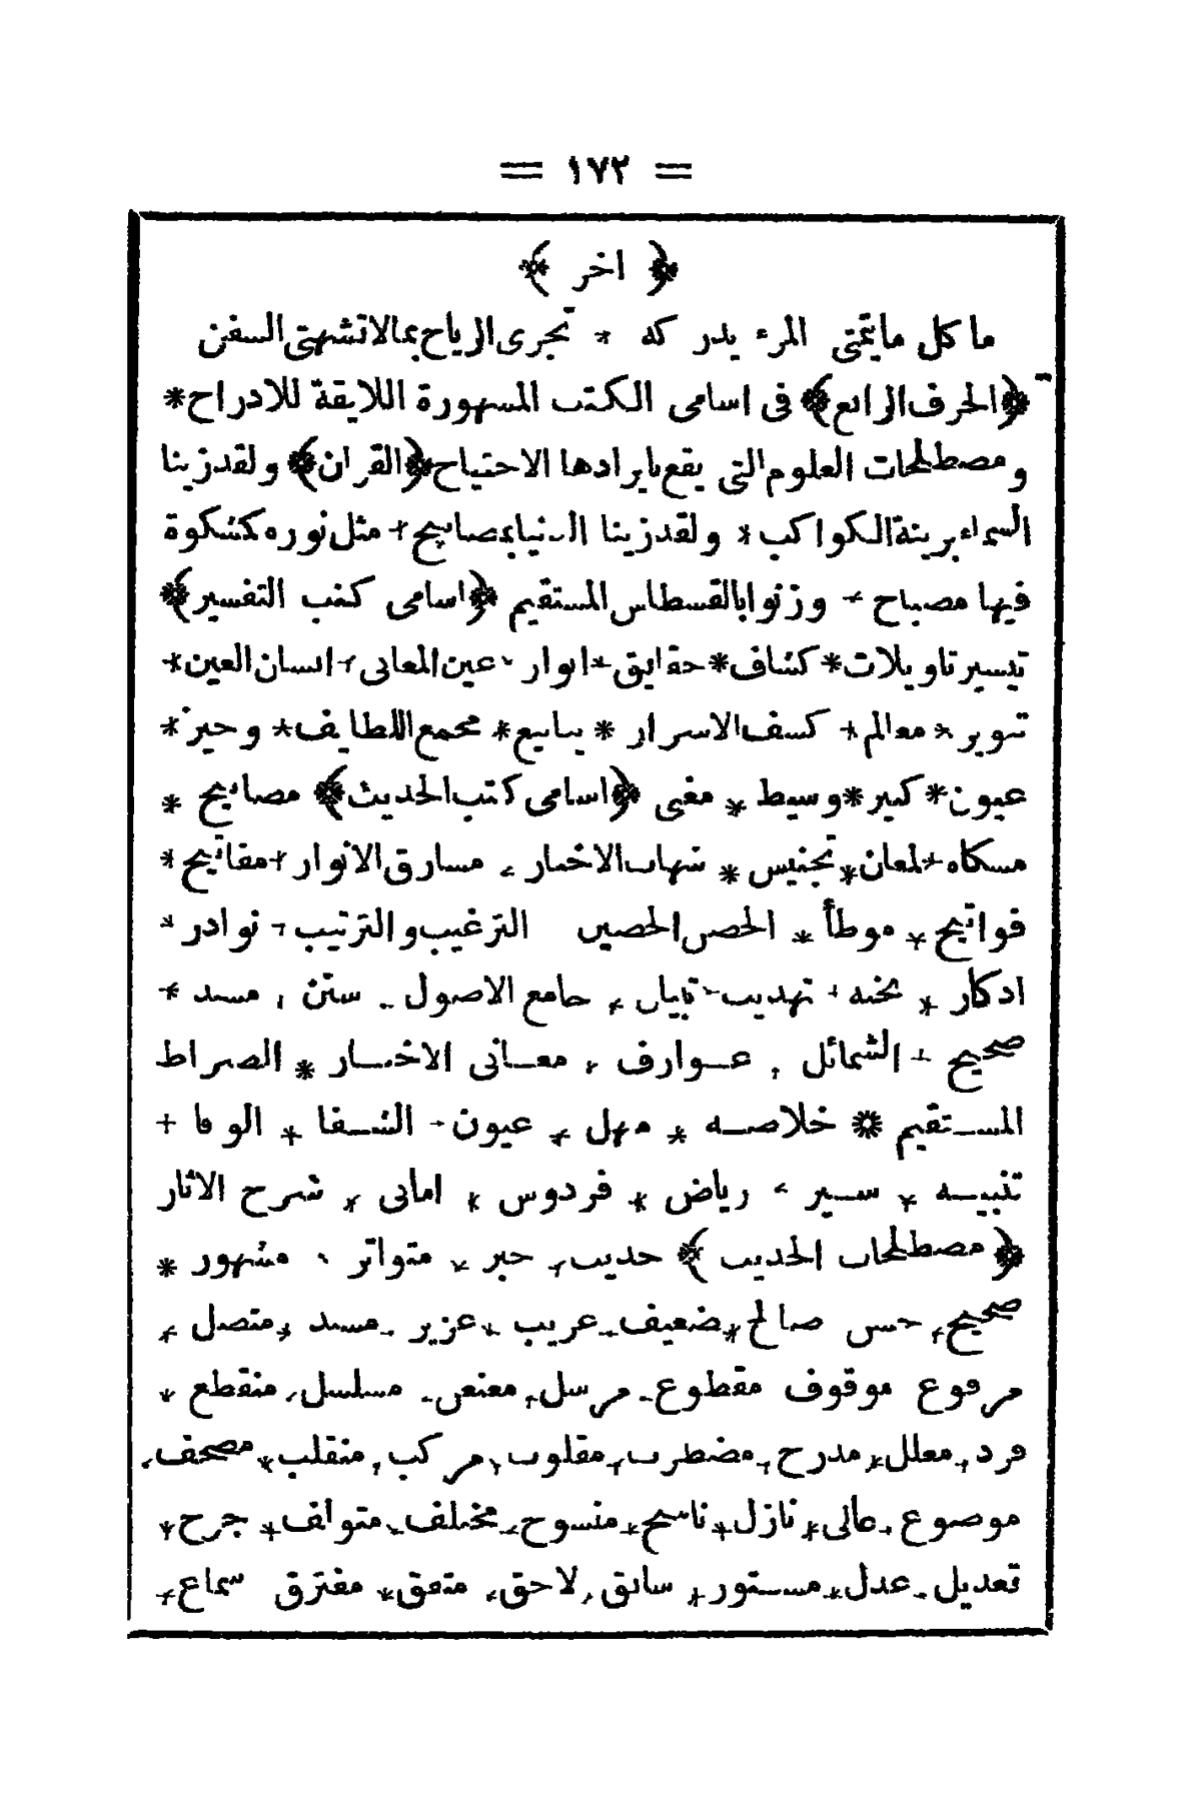 = ١٧٢ =
﴿ اخر ﴾
ما كل ما يتمنى المرء يدركه * تجرى الرياح بما لا تشتهى السفن
﴿الحرف الرابع﴾ فى اسامى الكتب المشهورة اللايقة للادراج *
ومصطلحات العلوم التى يقع بايرادها الاحتياج ﴿القران﴾ ولقد زينا
السماء بزينة الكواكب * ولقد زينا الدنيا بمصابيح * مثل نوره كمشكوة
فيها مصباح * وزنوا بالقسطاس المستقيم ﴿اسامى كتب التفسير﴾
تيسير تاويلات * كشاف * حقايق * انوار * عين المعانى * انسان العين *
تنوير * معالم * كشف الاسرار * ينابيع * مجمع اللطايف * وجيز *
عيون * كبير * وسيط * مغنى ﴿اسامى كتب الحديث﴾ مصابيح *
مشكاه * لمعان * تجنيس * شهاب الاخبار * مشارق الانوار * مفاتيح *
فواتيح * موطأ * الحصن الحصين الترغيب والترتيب * نوادر *
اذكار * نخبه * تهذيب * تبيان * جامع الاصول * سنن * مسند *
صحيح * الشمائل * عوارف * معانى الاخبار * الصراط
المستقيم * خلاصه * منهل * عيون * الشفا * الوفا *
تنبيه * سير * رياض * فردوس * امانى * شرح الاثار
﴿مصطلحات الحديث﴾ حديث * خبر * متواتر * مشهور *
صحيح * حسن صالح * ضعيف * غريب * عزيز * مسند * متصل *
مرفوع موقوف مقطوع * مرسل * معنعن * مسلسل * منقطع *
فرد * معلل * مدرج * مضطرب * مقلوب * مركب * منقلب * مصحف *
موضوع * عالى * نازل * ناسخ * منسوخ * مختلف * متوالف * جرح *
تعديل * عدل * مستور * سابق * لاحق * متفق * مفترق سماع *